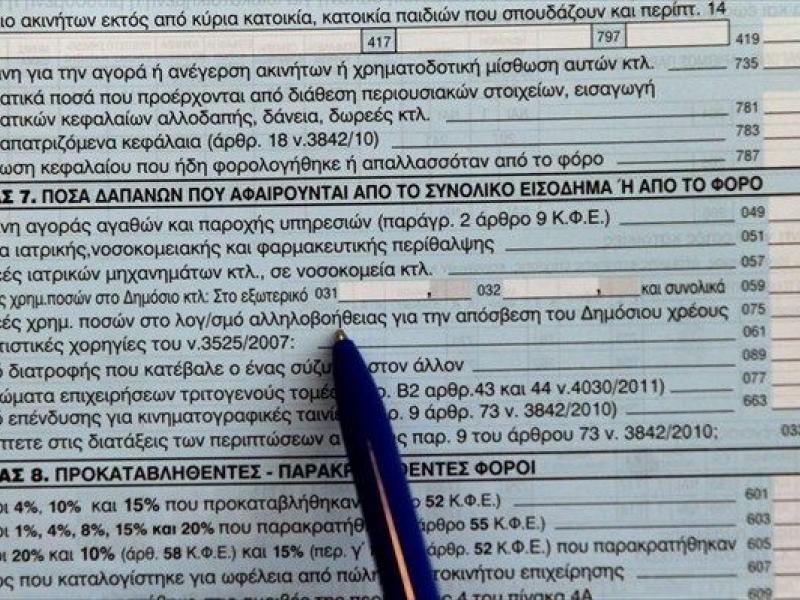 ιο ακινήτων εκτός από κύρια κατοικία, κατοικία παιδιών που σπουδάζουν και περίπτ. 14
417 797 419
νη για την αγορά ή ανέγερση ακινήτων ή χρηματοδοτική μίσθωση αυτών κτλ. 735
ατικά ποσά που προέρχονται από διάθεση περιουσιακών στοιχείων, εισαγωγή
ατικών κεφαλαίων αλλοδαπής, δάνεια, δωρεές κτλ. 781
απατριζόμενα κεφάλαια (άρθρ. 18 ν.3842/10) 783
ωση κεφαλαίου που ήδη φορολογήθηκε ή απαλλασσόταν από το φόρο 787
ΑΣ 7. ΠΟΣΑ ΔΑΠΑΝΩΝ ΠΟΥ ΑΦΑΙΡΟΥΝΤΑΙ ΑΠΟ ΤΟ ΣΥΝΟΛΙΚΟ ΕΙΣΟΔΗΜΑ Ή ΑΠΟ ΤΟ ΦΟΡΟ
νη αγοράς αγαθών και παροχής υπηρεσιών (παράγρ. 2 άρθρο 9 Κ.Φ.Ε.) 049
α ιατρικής,νοσοκομειακής και φαρμακευτικής περίθαλψης 051
ές ιατρικών μηχανημάτων κτλ., σε νοσοκομεία κτλ. 057
ς χρημ.ποσών στο Δημόσιο κτλ: Στο εξωτερικό 031 , 032 , και συνολικά 059
ές χρημ. ποσών στο λογ/σμό αλληλοβοήθειας για την απόσβεση του Δημόσιου χρέους 075
τιστικές χορηγίες του ν.3525/2007: 061
ό διατροφής που κατέβαλε ο ένας σύζυ στον άλλον 089
ώματα επιχειρήσεων τριτογενούς τομέ ρ. Β2 αρθρ.43 και 44 ν.4030/2011) 077
ό επένδυσης για κινηματογραφικές ταινί ρ. 9 άρθρ. 73 ν. 3842/2010) 663
πτετε στις διατάξεις των περιπτώσεων α ς παρ. 9 του άρθρου 73 ν. 3842/2010; 03
ΑΣ 8. ΠΡΟΚΑΤΑΒΛΗΘΕΝΤΕΣ - ΠΑΡΑΚΡ ΘΕΝΤΕΣ ΦΟΡΟΙ
οι 4%, 10% και 15% που προκαταβλήθηκαν 52 Κ.Φ.Ε.) 601
οι 1%, 4%, 8%, 15% και 20% που παρακρατήθ άρθρο 55 Κ.Φ.Ε.) 603
οι 20% και 10% (άρθ. 58 Κ.Φ.Ε.) και 15% (περ. γ΄ άρθρ. 52 Κ.Φ.Ε.) που παρακρατήθηκαν 605
ος που καταλογίστηκε για ωφέλεια από πώλη τοκινήτου επιχείρησης 607
4 του πίνακα 4Α 609